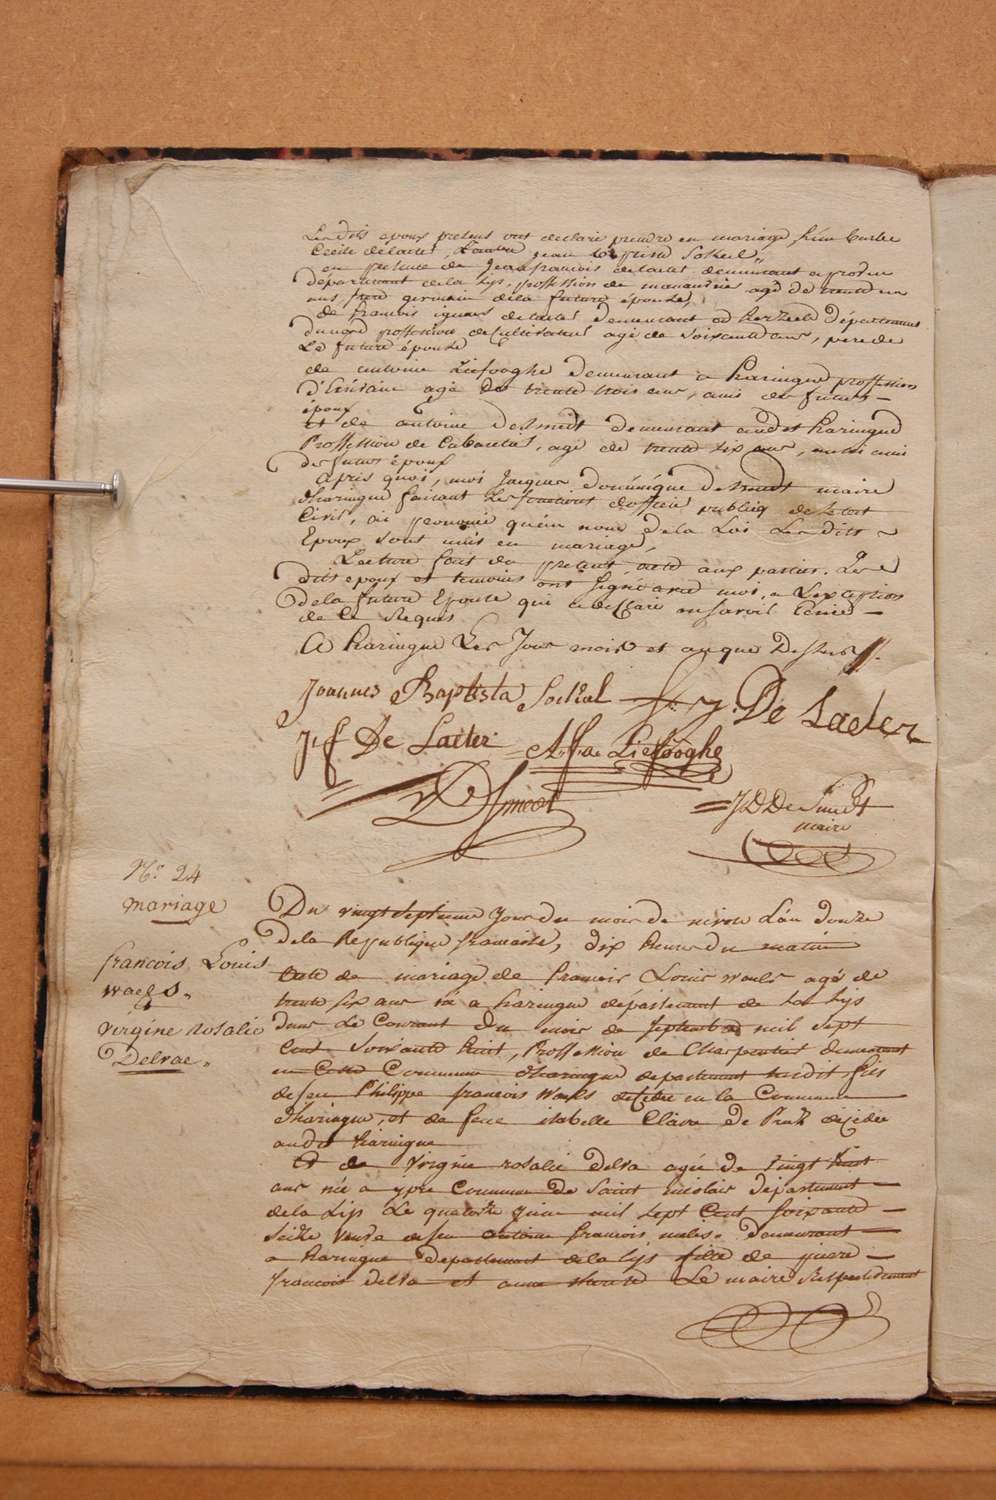 Les dits epoux presens ont declaré prendre en mariage l'un Barbe
Cecile delater, L'autre jean Baptiste Sokeel,,
en presence de Jean francois delater demeurant a
departement de la Lys, profession de agé de trente un
ans frere germain de la future épouse,
de francois ignace delater demeurant a herzeele Département
du nord profession de Cultivateur agé de Soixante ans, pere de
La future épouse
de antoine Liefooghe demeurant a haringue proffession
D'Ecrivain agé de trente trois ans, ami des futurs
époux
et de antoine deSmedt demeurant audit haringue
Proffession de Cabaretier, agé de trente six ans, aussi ami
des futurs époux
Après quoi, moi Jacques dominique deSmedt maire
d'haringue faisant Les fonctions d'officier publiq de L'etat
Civil, ai prononcé qu'au nom de la Loi Les dits
Epoux sont unis en mariage,
Lecture fait du present acte aux parties. Les
dits epoux et temoins ont signé avec moi, a L'exception
de la future Epouse qui a declaré ne savoir Ecrire
de ce Requis
A haringue Les Jour mois et an que Dessus
Joannes Baptista Sockeel f. ig. De Laeter
J: f De Laeter A. f. Liefooghe
DSmedt J D De Smedt
maire
No. 24
mariage
francois Louis
Waels.
&
Virgine Rosalie
Delrae.
Du vingt Septieme Jour du mois de nivose L'an douze
de la Republique francaise, dix heures du matin
acte de mariage de francois Louis Waels agé de
trente six ans né a haringue département de La Lys
dans Le Courant du mois de Septembre mil sept
Cent Soixante huit, Proffession de Charpentier demeurant
en Cette Commune d'haringue departement susdit fils
de feu Philippe francois Waels décédé en la Commune
d'haringue, et de feue isabelle Claire de Pratz décédée
audit haringue
Et de Virginie rosalie Delra agée de vingt huit
ans née a ypre Commune de Saint nicolais departement
de la Lys Le quatorze juin mil sept Cent soixante
seize veuve de feu antoine francois malis. demeurant
a haringue Departement de la Lys fille de pierre
francois delra et anne Le maire Respectivement